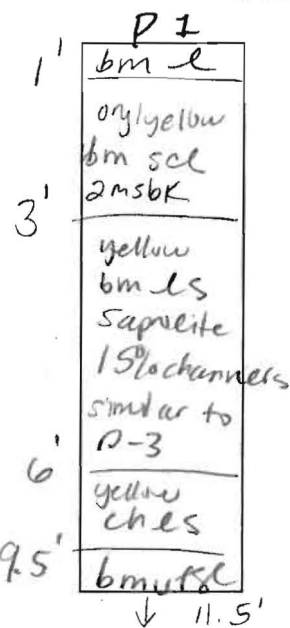 P 1
1'
brn l
yellow
brn scl
2msbk
3'
yellow
brn ls
Saprolite
15% channers
similar to
P-3
6'
yellow
chls
9.5'
11.5'